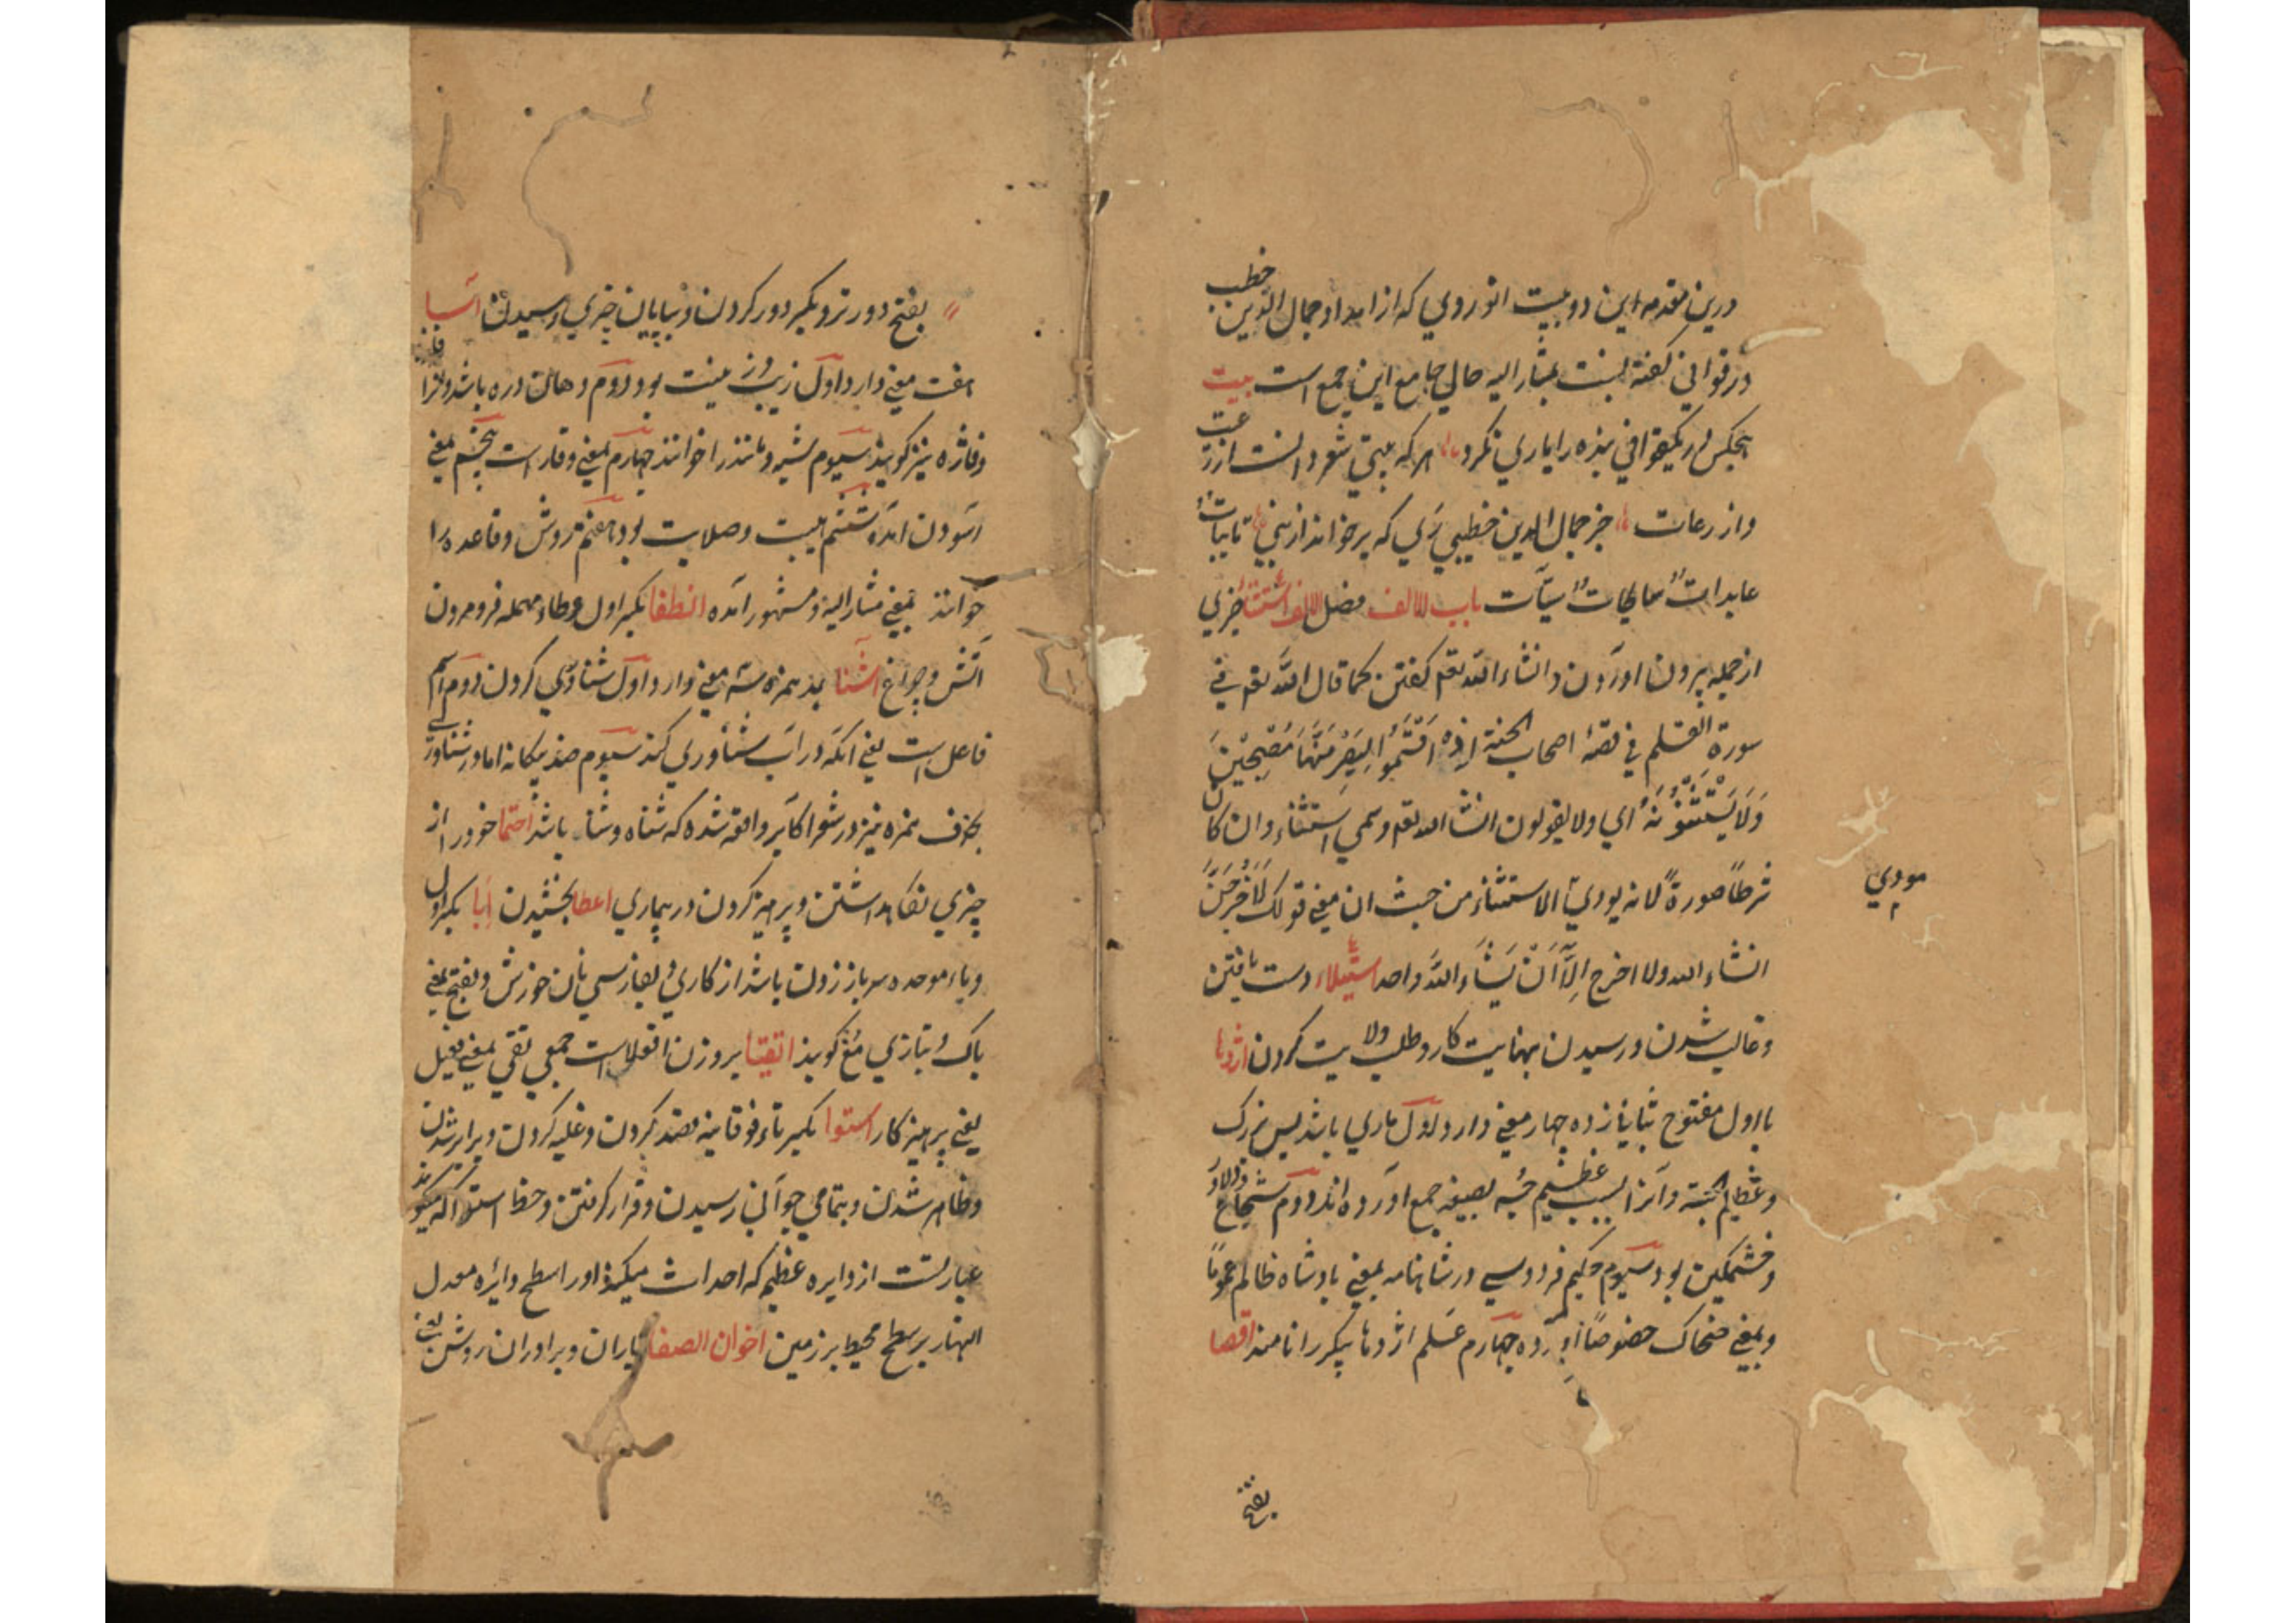 درین مقدمه این دو بیت انوری که از امداد جمال الدین خطیب
در قوافی کفته بنسبت بمشار الیه حالی جامع این جمع است بیت
هیچکس در یکقوافی بنده را یاری نکرد هر که بیتی شعر دانست از زرعیت
واز رعات جز جمال الدین خطیبی ری که برخواند از نبی تایبات
عابدات سایحات سیات باب الالف فصل الالف استثنا چیزی
از جمله بیرون اوردن وانشاء الله تعم کفتن کما قال الله تعم فی
سورة القلم فی قصة اصحاب الجنة اِذْ اَقْسَمُوا لَیَصْرِمُنَّهَا مُصْبِحِیْنَ
وَلَا یَسْتَثْنُوْنَ ای ولا یقولون انشا الله تعم وسمی استثناء وان کان
شرطاً صورةً لانه یودی الاستثناء من حیث ان معنی قولک لَاَخْرُجَنَّ
مودی
انشاء الله ولا اخرج اِلَّا اَنْ یَشَاءَ اللهُ واحد استیلاء دست یافتن
وغالب شدن ورسیدن بنهایت کار وطلب ولایت کردن اژدها
با اول مفتوح بثانی زده چهار معنی دارد اول ماری باشد بس بزرک
وعظیم الجثة وآنرا بسبب عظیم جثه بصیغه جمع اورده اند دوم شجاع ودلاور
وخشمکین بود سیوم حکیم فردوسی در شاهنامه بمعنی بادشاه ظالم عموماً
وبمعنی ضحاک خصوصاً اورده چهارم علم اژدها پیکر را نامند اقصا
بفتح
بفتح دورتر وبکسر دور کردن وبپایان چیزی رسیدن آسا
هفت معنی دارد اول زیب وزینت بود دوم دهان دره باشد وانرا فاژ
وفاژه نیز کویند سیوم شبه ومانند را خوانند چهارم بمعنی وقار است پنجم بمعنی
اسودن امده ششم هیبت وصلابت بود هفتم روش وقاعده را
خوانند بمعنی مشار الیه ومشهور آمده انطفا بکسر اول وطاء مهمله فرومردن
آتش وچراغ اشنا بمد همزه سه معنی دارد اول شناوری کردن دوم اسم
فاعل است یعنی انکه در آب شناوری کند سیوم ضد بیکانه اما در شناوری
بحذف همزه نیز در شعر اکابر واقع شده که شناه وشنا باشد احتما خود را از
چیزی نکاهداشتن وپرهیز کردن در بیماری اعطا بخشیدن ابا بکسر اول
وباء موحده سرباز زدن باشد از کاری وبفارسی نان خورش وبفتح بمعنی
باک وبتازی مغ کویند اتقیا بروزن افعلا است جمع تقی بمعنی فعیل
یعنی پرهیزکار استوا بکسر تاء فوقانیه قصد کردن وغلبه کردن وبرابر شدن
وظاهر شدن وبتمامی جوانی رسیدن وقرار کرفتن وخط استوا آنکه میکویند
عبارتست از دایره عظیم که احداث میکند اورا سطح دائره معدل
النهار بر سطح محیط بر زمین اخوان الصفا یاران وبرادران روشن یعنی